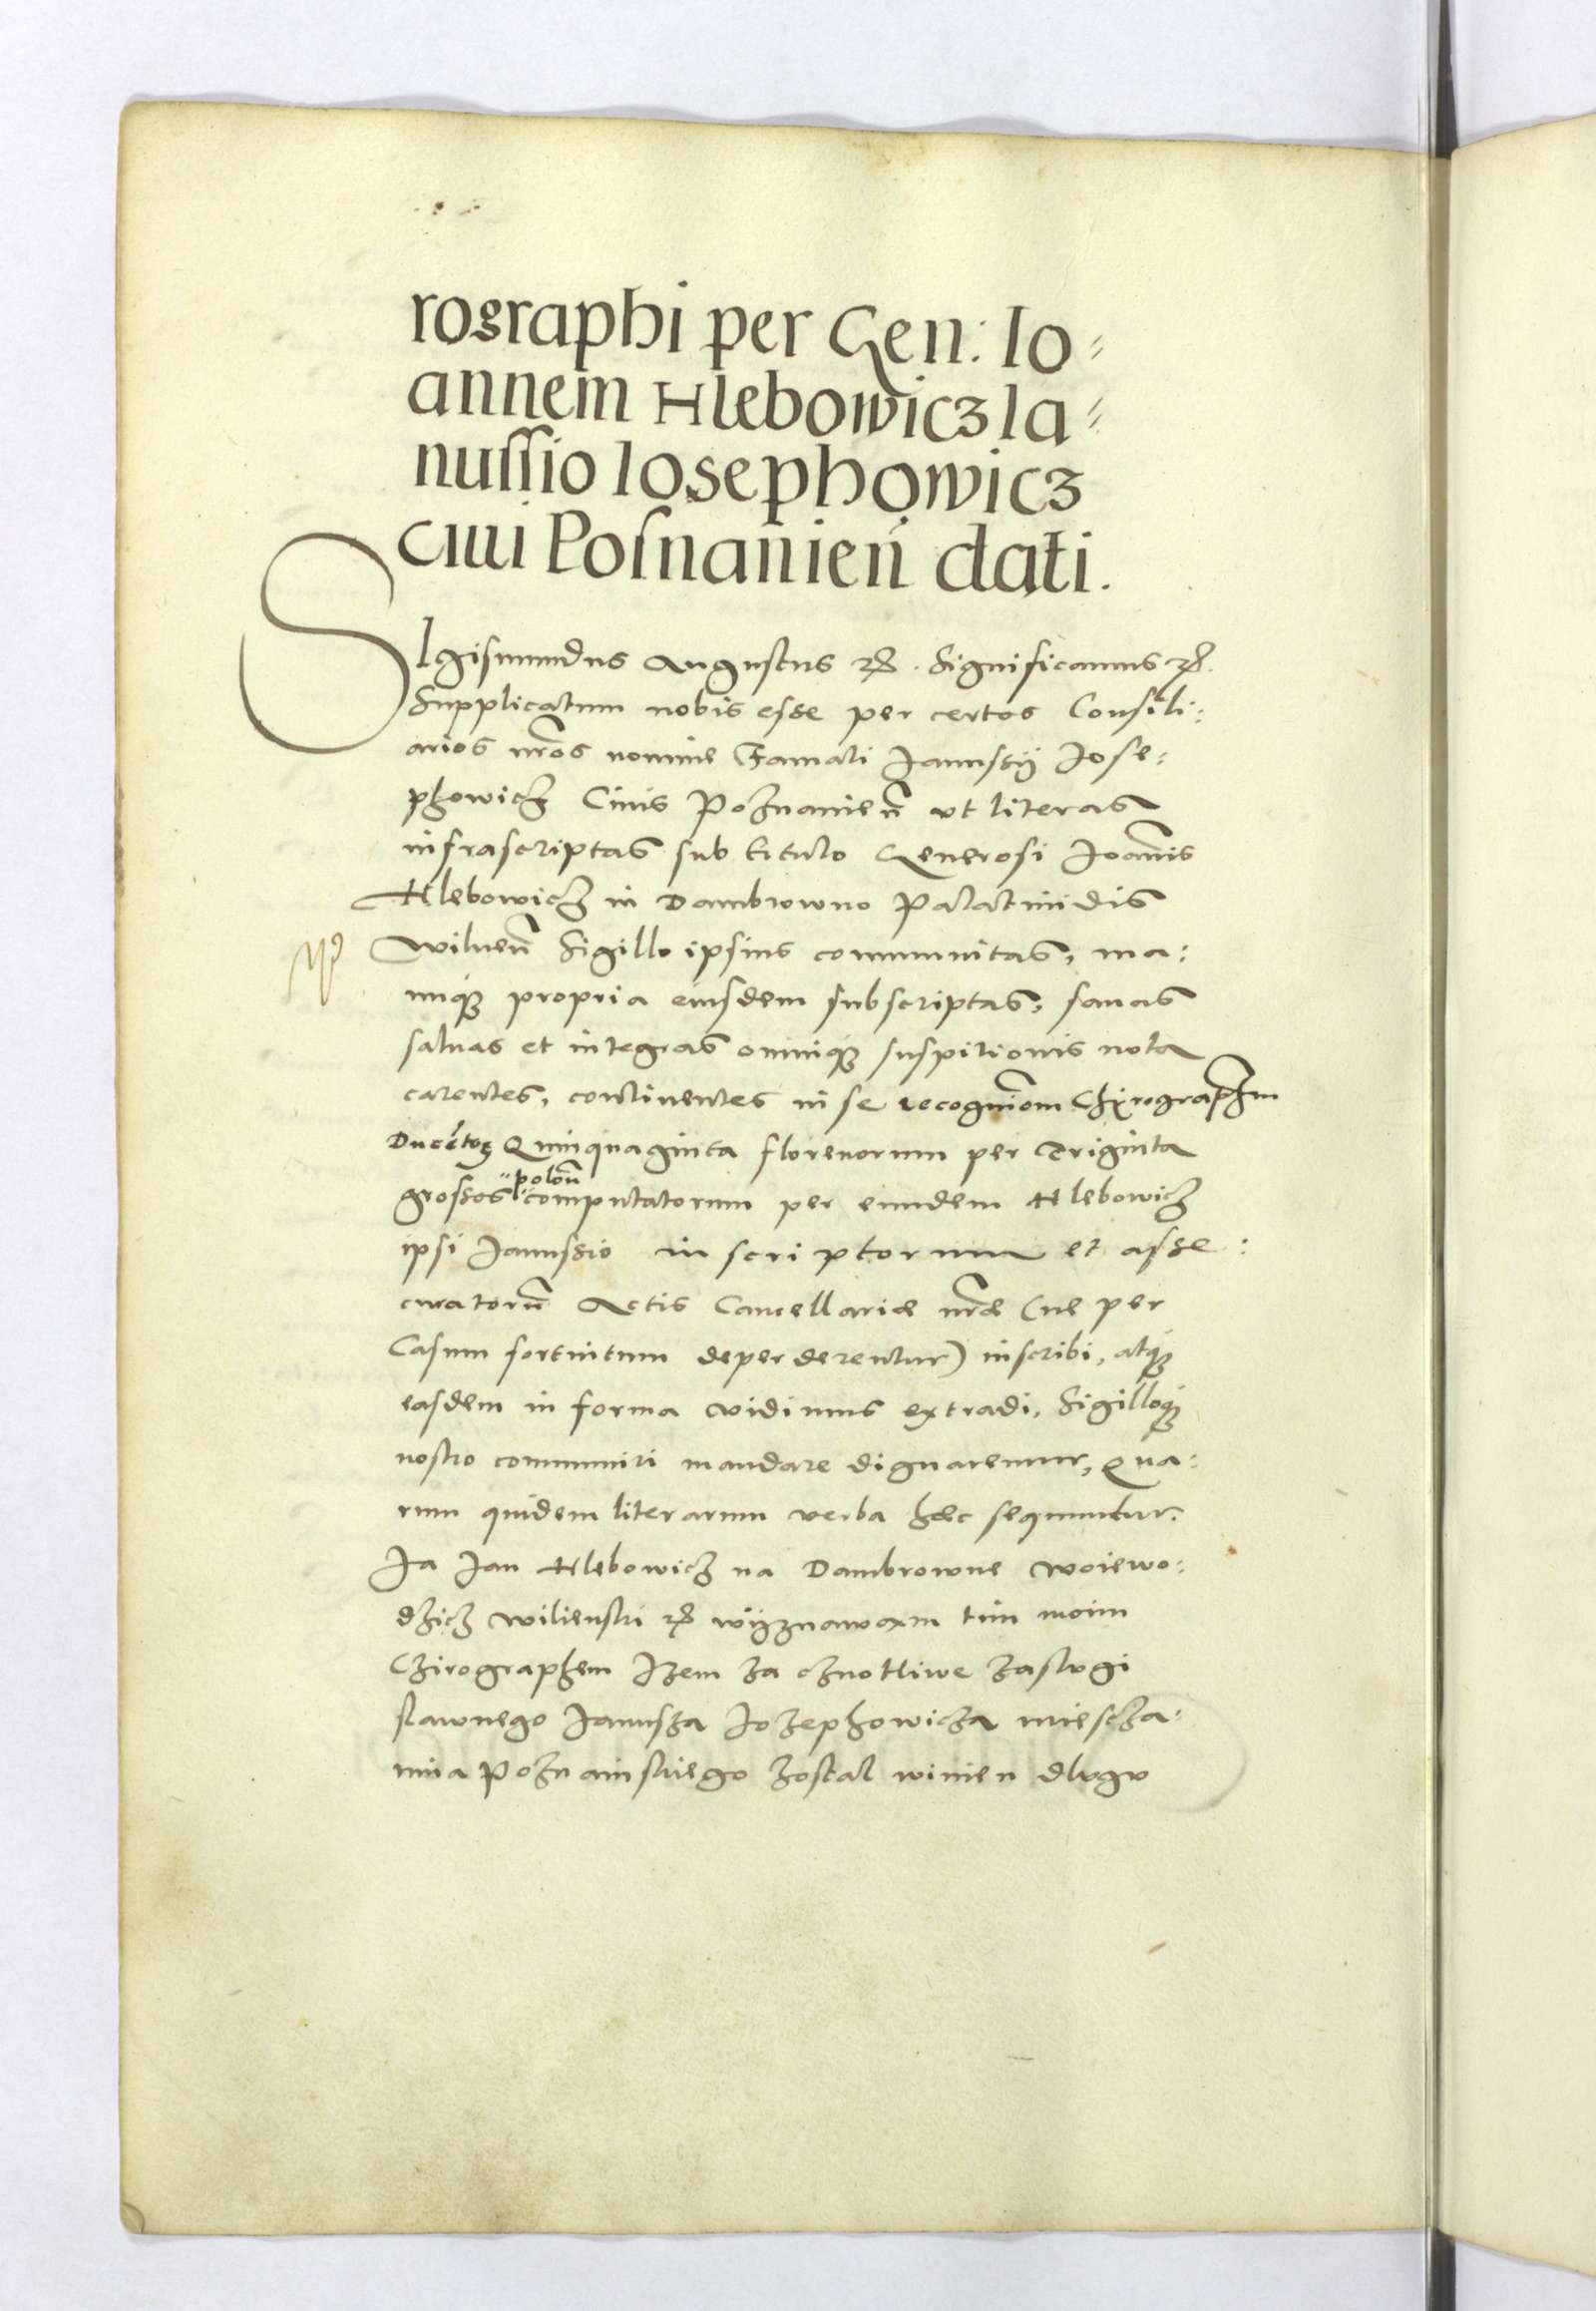 rographi per Gen: Io=
annem Hlebowicz Ia=
nussio Iosephowicz
ciui Posnanien̄ dati.
SIgismundus Augustus etc. Significamus etc.
Supplicatum nobis esse per certos Consili:
arios nr̃os nomine Famati Janussij Jose:
phowicz Ciuis Poznanien̄ vt literas
infrascriptas sub titulo Generosi Joan̄is
Hlebowicz in Dambrowno Palatinidis
wilnen̄ Sigillo ipsius communitas, ma:
nuq3 propria eiusdem subscriptas, sanas
saluas et integras omniq3 suspitionis nota
carentes, continentes in se recognitiõem Chirograph̃m
Ducẽtoꝝ Quinquaginta florenorum per Triginta
grossos polon̄ computatorum per eundem Hlebowicz
ipsi Janussio inscriptorum et asse:
curatorũ Actis Cancellariæ nr̃æ (ne per
Casum fortuitum deperderentur) inscribi, atq3
easdem in forma vidimus extradi, Sigilloq3
nostro communiri mandare dignaremur, Qua:
rum quidem literarum verba hæc sequuntur.
Ja Jan Hlebowicz na Dambrowne woiewo:
dzicz wilienski etc. wÿznawam tim moim
Chirographem Jzem za cznotliwe zaslvgi
slawnego Janusza Jozephowicza miescza:
nina Poznainskiego zostal winien dlvgv